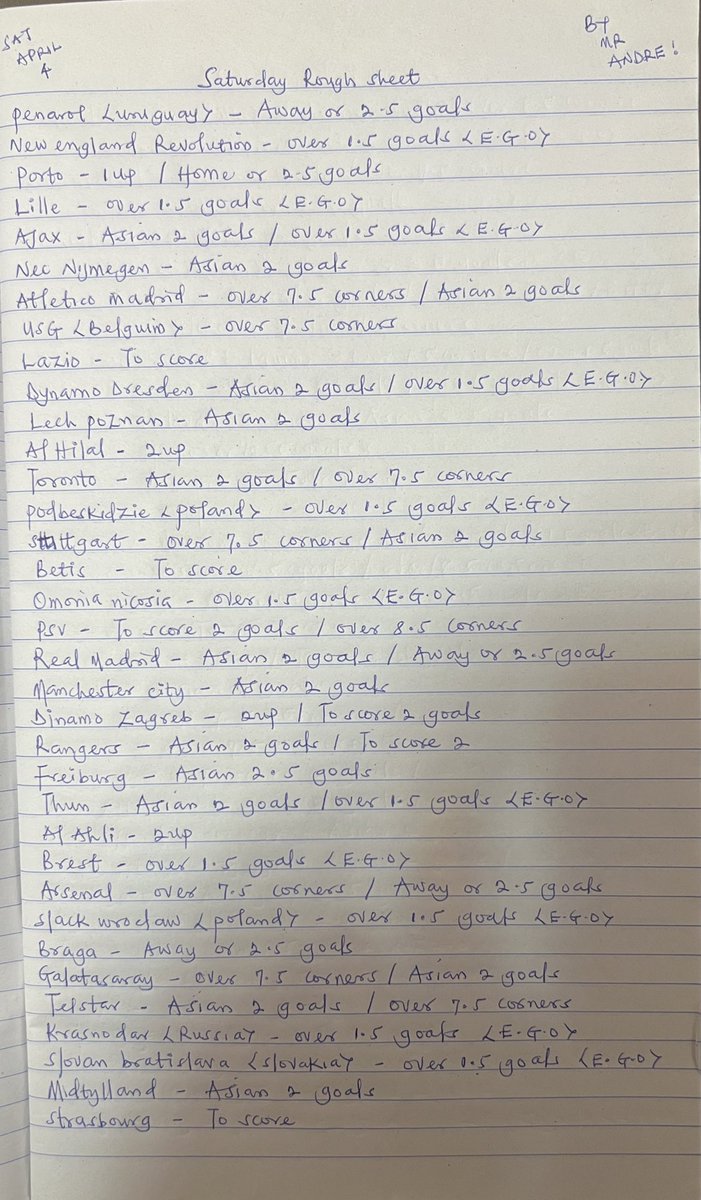 SAT
APRIL
4
BY
MR
ANDRE!
Saturday Rough sheet
Penarol <uruguay> - Away or 2.5 goals
New england Revolution - over 1.5 goals <E.G.O>
Porto - 1up / Home or 2.5 goals
Lille - over 1.5 goals <E.G.O>
Ajax - Asian 2 goals / over 1.5 goals <E.G.O>
Nec Nijmegen - Asian 2 goals
Atletico madrid - over 7.5 corners / Asian 2 goals
USG <Belguim> - over 7.5 corners
Lazio - To score
Dynamo Dresden - Asian 2 goals / over 1.5 goals <E.G.O>
Lech poznan - Asian 2 goals
Al Hilal - 2up
Toronto - Asian 2 goals / over 7.5 corners
podbeskidzie <poland> - over 1.5 goals <E.G.O>
Stuttgart - over 7.5 corners / Asian 2 goals
Betis - To score
Omonia nicosia - over 1.5 goals <E.G.O>
PSV - To score 2 goals / over 8.5 corners
Real Madrid - Asian 2 goals / Away or 2.5 goals
Manchester city - Asian 2 goals
Dinamo Zagreb - 2up / To score 2 goals
Rangers - Asian 2 goals / To score 2
Freiburg - Asian 2.5 goals
Thun - Asian 2 goals / over 1.5 goals <E.G.O>
Al Ahli - 2up
Brest - over 1.5 goals <E.G.O>
Arsenal - over 7.5 corners / Away or 2.5 goals
Slack wroclaw <poland> - over 1.5 goals <E.G.O>
Braga - Away or 2.5 goals
Galatasaray - over 7.5 corners / Asian 2 goals
Telstar - Asian 2 goals / over 7.5 corners
Krasnodar <Russia> - over 1.5 goals <E.G.O>
Slovan bratislava <Slovakia> - over 1.5 goals <E.G.O>
Midtylland - Asian 2 goals
Strasbourg - To score